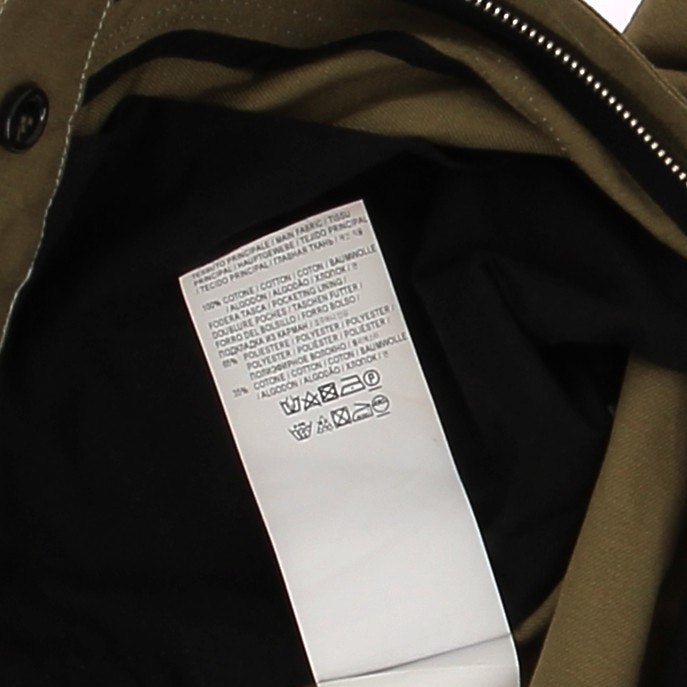 TESSUTO PRINCIPALE / MAIN FABRIC / TISSU
PRINCIPAL / HAUPTGEWEBE / TEJIDO PRINCIPAL
/ TECIDO PRINCIPAL / ГЛАВНАЯ ТКАНЬ /
100% COTONE / COTTON / COTON / BAUMWOLLE
/ ALGODÓN / ALGODÃO / ХЛОПОК /
FODERA TASCA / POCKETING LINING /
DOUBLURE POCHES / TASCHEN FUTTER /
FORRO DEL BOLSILLO / FORRO BOLSO /
ПОДКЛАДКА ИЗ КАРМАН /
65% POLIESTERE / POLYESTER / POLYESTER /
POLYESTER / POLIÉSTER / POLIÉSTER /
ПОЛИЭФИРНОЕ ВОЛОКНО /
35% COTONE / COTTON / COTON / BAUMWOLLE
/ ALGODÓN / ALGODÃO / ХЛОПОК /